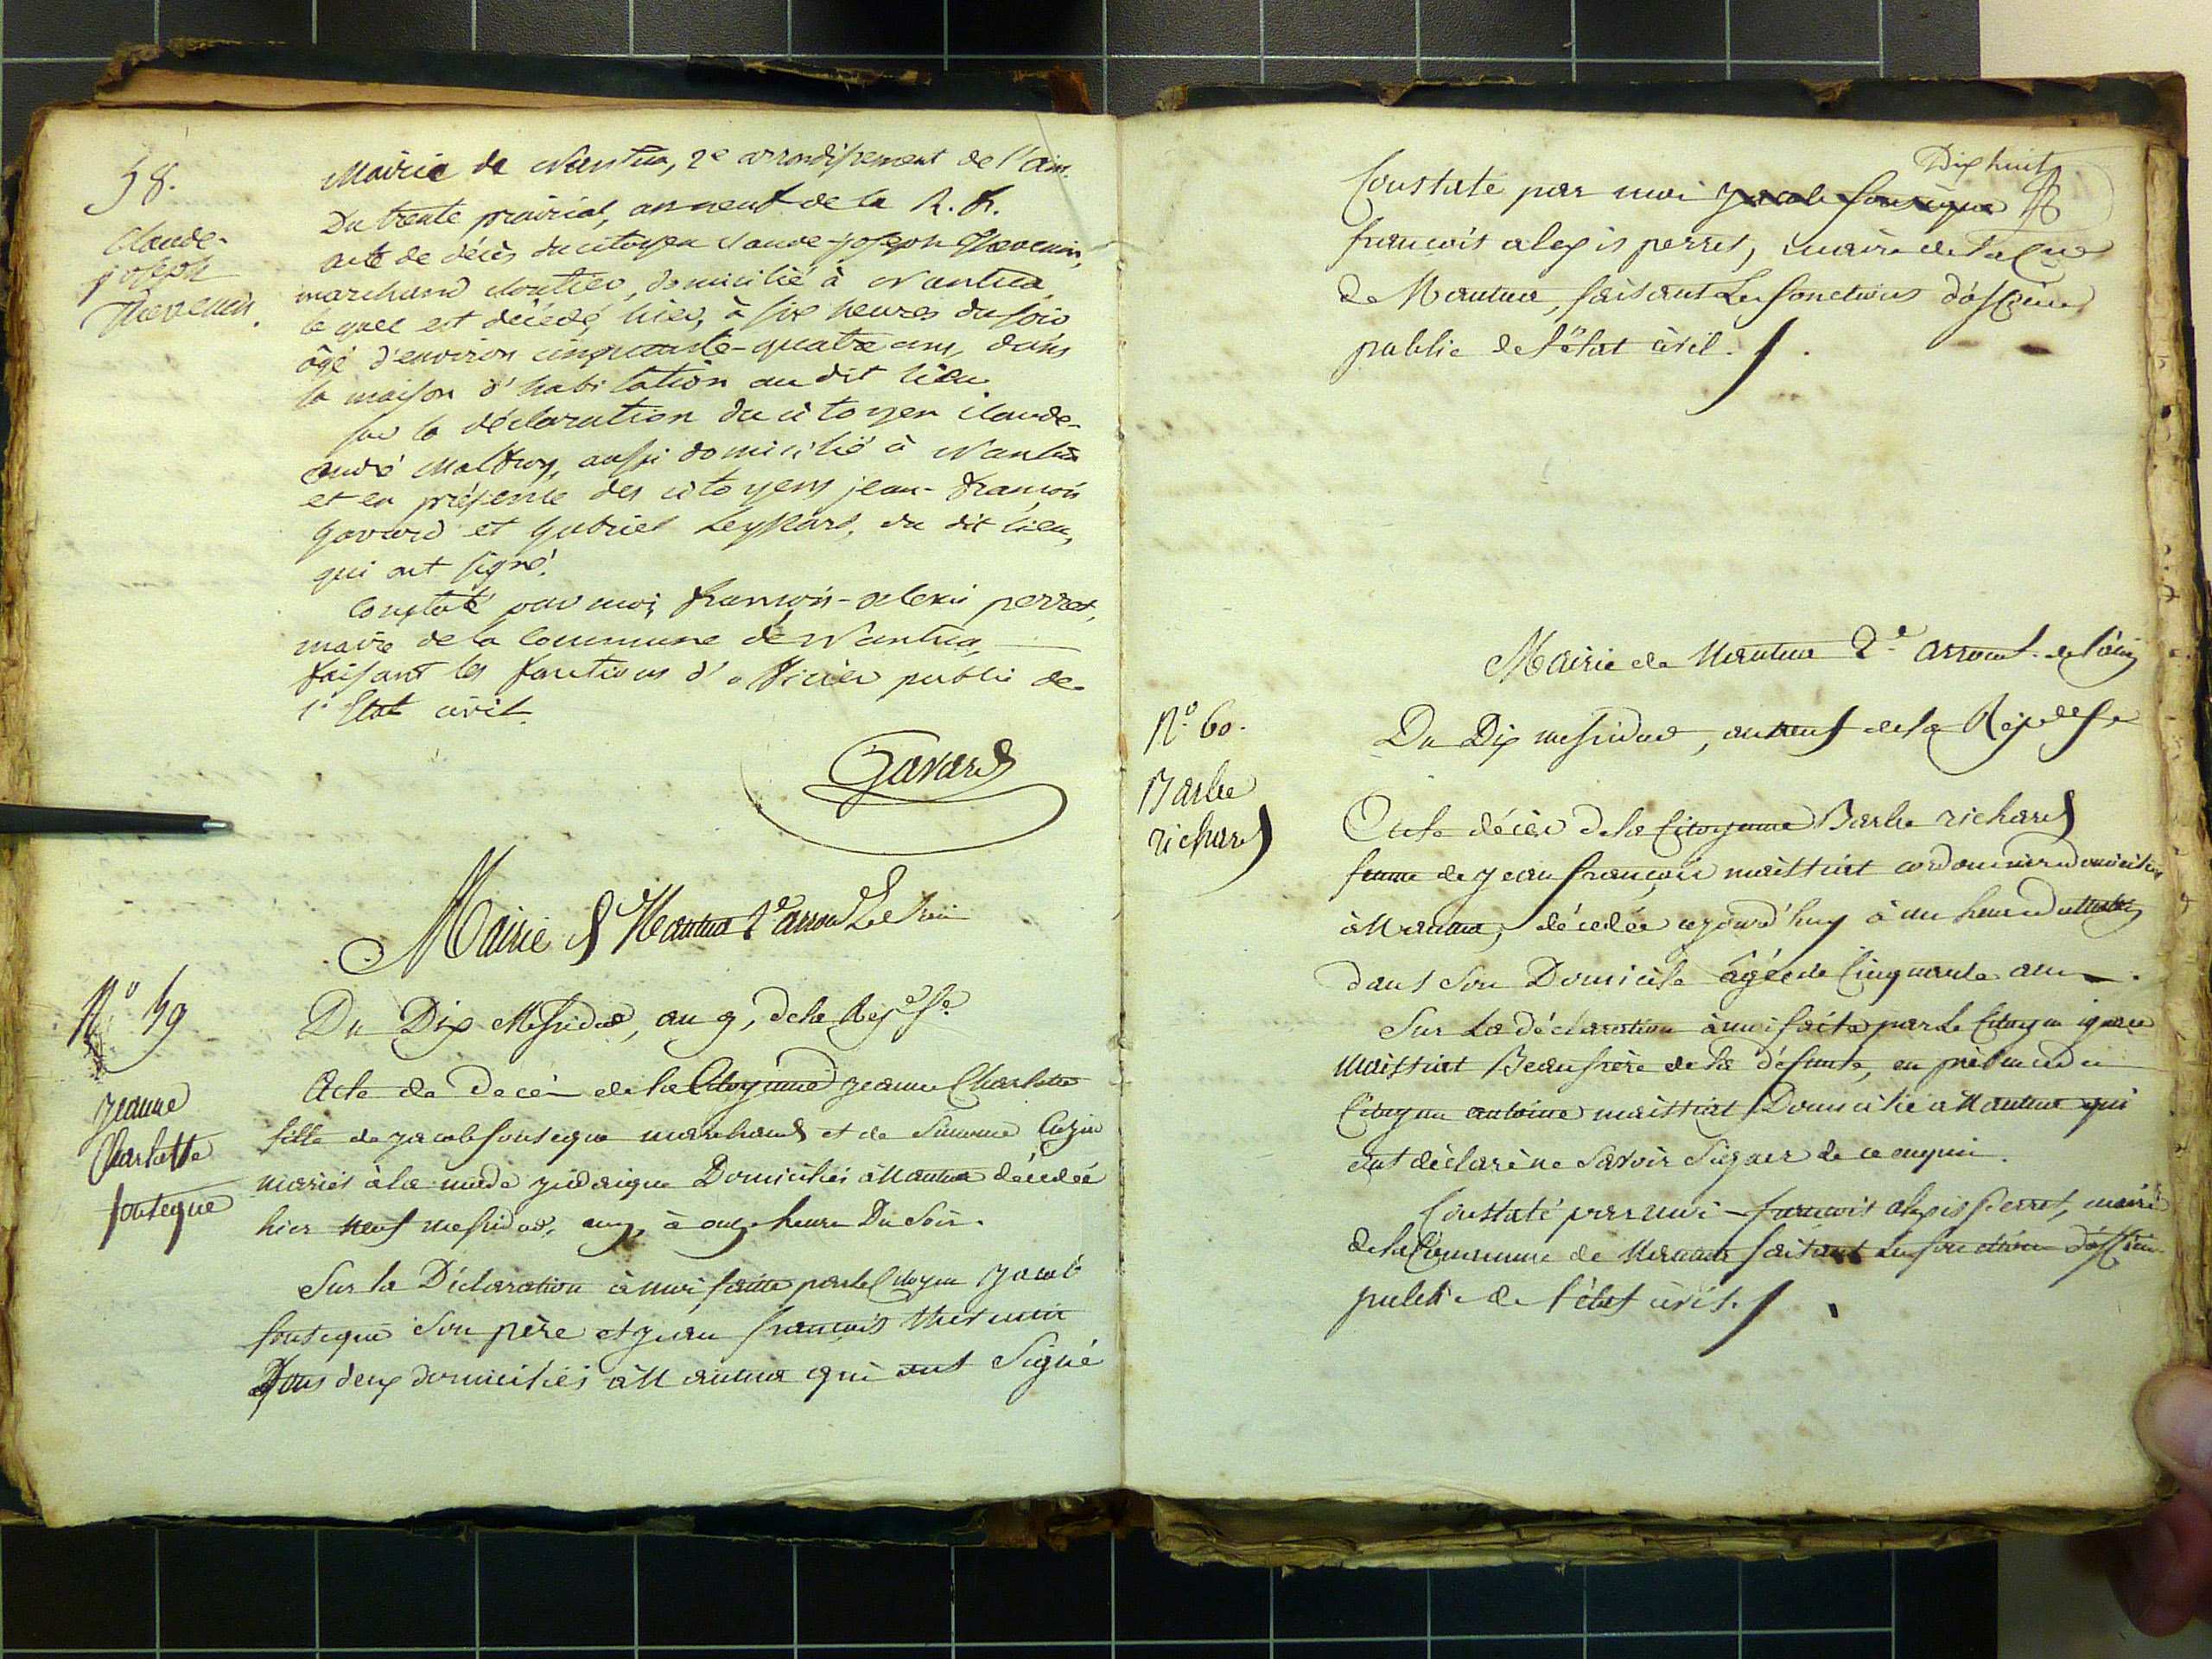 58.
Claude-
joseph
Thevenin.
Mairie de Nantua, 2e arrondissement de l'ain.
Du trente prairial, an neuf de la R. f.
acte de décès du citoyen claude-joseph Thevenin,
marchand cloutier, domicilié à Nantua,
le quel est décédé hier, à six heures du soir
âgé d'environ cinquante-quatre ans, dans
sa maison d'habitation au dit lieu.
sur la déclaration du citoyen claude-
andré aussi domicilié à Nantua
et en présence des citoyens jean-françois
gavard et gabriel du dit lieu,
qui ont signé.
constaté par moi, françois-alexis perret,
maire de la commune de Nantua,
faisant les fonctions d'officier public de
l'Etat civil.
Gavard
Mairie de Nantua 2e arrond de l'ain
No 59
jeanne
Charlotte
fonseque
Du Dix Messidor, an 9, de la Repe fse
Acte de decés de la Citoyenne jeanne Charlotte
fille de jacob fonseque marchand et de Simonne
mariés à la mode judaique Domiciliés à Nantua décédée
hier neuf messidor, an 9, à onze heure Du Soir.
Sur la Déclaration à moi faitte par le Citoyen jacob
fonseque Son père et jean françois thevenin
Tous deux domiciliés à Nantua qui ont Signé
Dix huit
Constaté par moi jacob fonseque
françois alexis perret, maire de la Cne
de Nantua, faisant Les fonctions d'officier
public de l'état civil.
Mairie de Nantua 2e arront. de l'ain
No 60.
Barbe
richard
Du Dix messidor, an neuf de la Repe fse
Acte décès de la Citoyenne Barbe richard
femme de jean françois maissiat cordonnier domicilié
à Nantua, décédée aujourd'huy à une heure du matin
dans Son Domicile âgée de Cinquante ans.
Sur La déclaration à moi faite par le Citoyen ignace
maissiat Beaufrère de la défunte, en présence du
Citoyen antoine maissiat Domicilié à Nantua qui
ont déclaré ne Savoir Signer de ce enquis.
Constaté par moi françois alexis Perret, maire
de la Commune de Nantua faisant les fonctions d'officier
public de l'état civil.